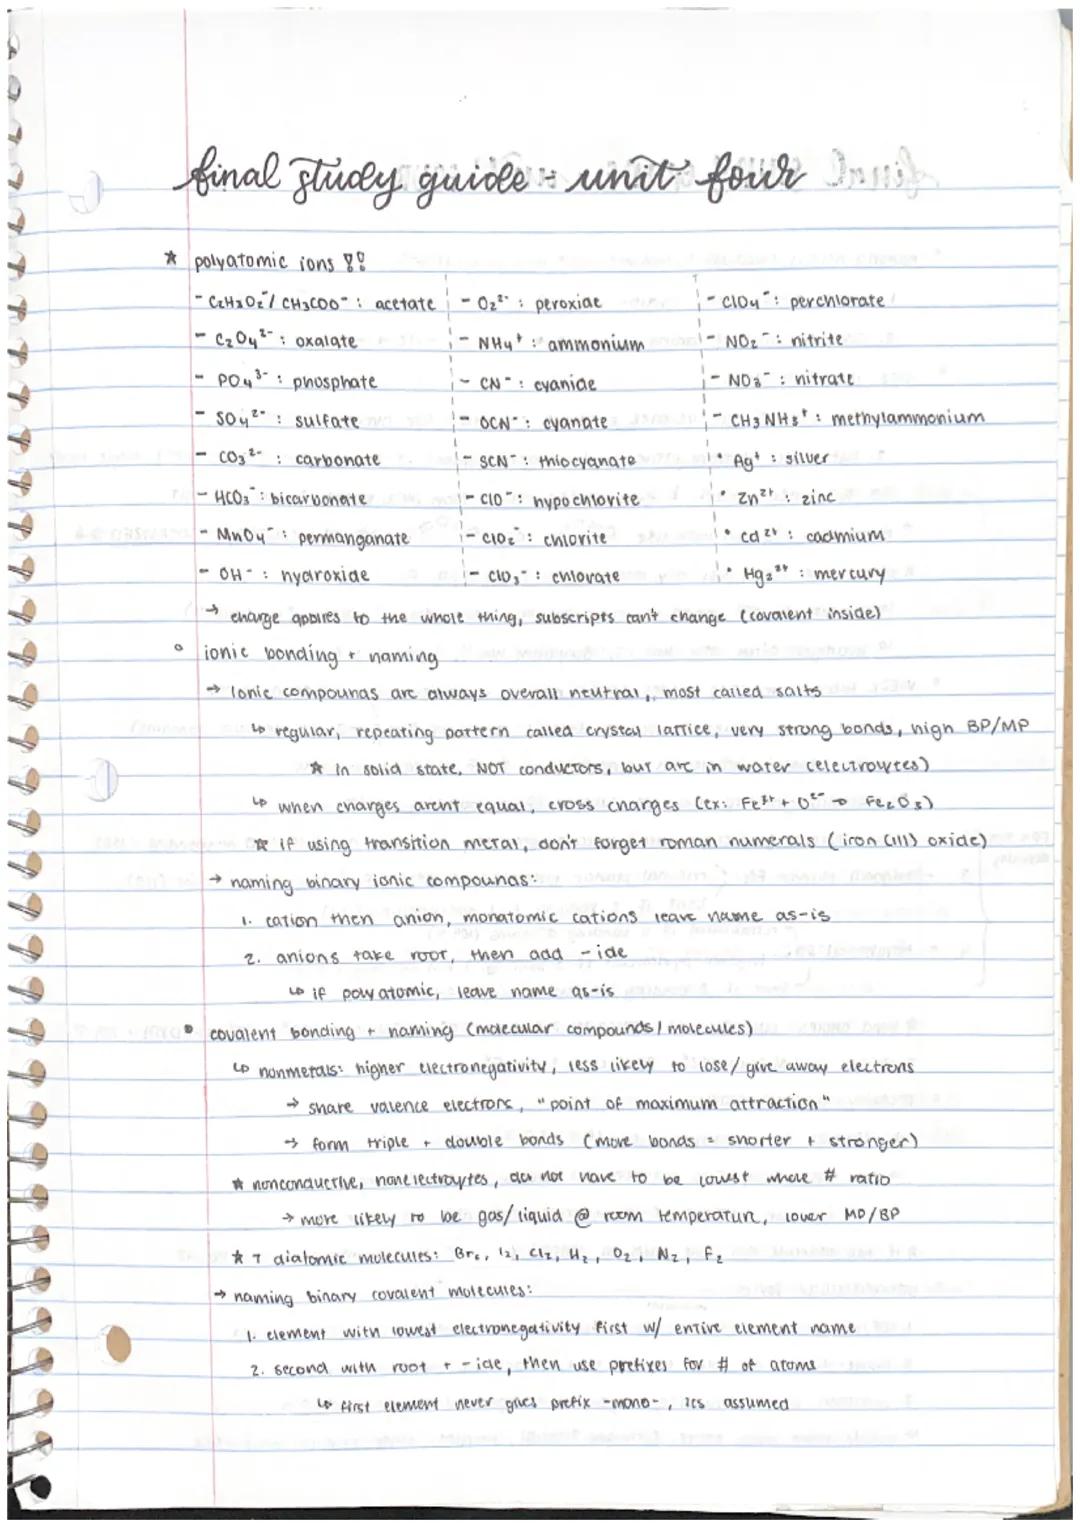 final study guide - unit four
☆ polyatomic ions !!
- C2H3O2⁻ / CH3COO⁻ : acetate
- C2O4²⁻ : oxalate
- PO4³⁻ : phosphate
- SO4²⁻ : sulfate
- CO3²⁻ : carbonate
- HCO3⁻ : bicarbonate
- MnO4⁻ : permanganate
- OH⁻ : hydroxide
- O2²⁻ : peroxide
- NH4⁺ : ammonium
- CN⁻ : cyanide
- OCN⁻ : cyanate
- SCN⁻ : thiocyanate
- ClO⁻ : hypochlorite
- ClO2⁻ : chlorite
- ClO3⁻ : chlorate
- ClO4⁻ : perchlorate
- NO2⁻ : nitrite
- NO3⁻ : nitrate
- CH3NH3⁺ : methylammonium
• Ag⁺ : silver
• Zn²⁺ : zinc
• Cd²⁺ : cadmium
• Hg2²⁺ : mercury
→ charge applies to the whole thing, subscripts can't change (covalent inside)
◦ ionic bonding + naming
→ ionic compounds are always overall neutral, most called salts
↳ regular, repeating pattern called crystal lattice, very strong bonds, high BP/MP
☆ in solid state, NOT conductors, but are in water (electrolytes)
↳ when charges arent equal, cross charges (ex: Fe³⁺ + O²⁻ → Fe2O3)
☆ if using transition metal, don't forget roman numerals (iron (III) oxide)
→ naming binary ionic compounds:
1. cation then anion, monatomic cations leave name as-is
2. anions take root, then add -ide
↳ if polyatomic, leave name as-is
• covalent bonding + naming (molecular compounds / molecules)
↳ nonmetals: higher electronegativity, less likely to lose/give away electrons
→ share valence electrons, "point of maximum attraction"
→ form triple + double bonds (more bonds = shorter + stronger)
☆ nonconductive, nonelectrolytes, do not have to be lowest whole # ratio
→ more likely to be gas/liquid @ room temperature, lower MP/BP
☆ 7 diatomic molecules: Br2, I2, Cl2, H2, O2, N2, F2
→ naming binary covalent molecules:
1. element with lowest electronegativity first w/ entire element name
2. second with root + -ide, then use prefixes for # of atoms
↳ first element never gets prefix -mono-, its assumed